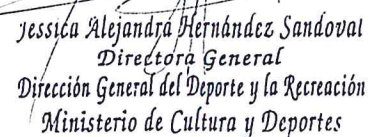 Jessica Alejandra Hernández Sandoval
Directora General
Dirección General del Deporte y la Recreación
Ministerio de Cultura y Deportes